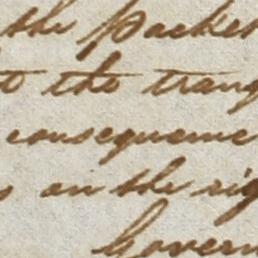 the Packet
the trang
consequence
on the rig
Govern